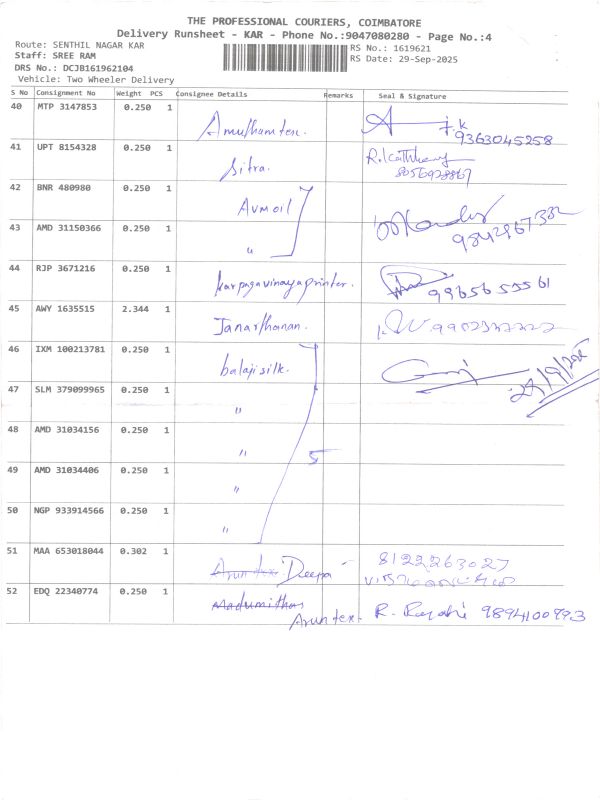 THE PROFESSIONAL COURIERS, COIMBATORE
Delivery Runsheet - KAR - Phone No.:9047080280 - Page No.:4
Route: SENTHIL NAGAR KAR
RS No.: 1619621
Staff: SREE RAM
RS Date: 29-Sep-2025
DRS No.: DCJB161962104
Vehicle: Two Wheeler Delivery
S No Consignment No Weight PCS Consignee Details Remarks Seal & Signature
40 MTP 3147853 0.250 1
Amutham tex. 9363045258
41 UPT 8154328 0.250 1
Sitra.
42 BNR 480980 0.250 1
Avmoil
43 AMD 31150366 0.250 1
"
44 RJP 3671216 0.250 1
karpagavinayaprinter. 9965655561
45 AWY 1635515 2.344 1
Janarthanan.
46 IXM 100213781 0.250 1
balaji silk.
47 SLM 379099965 0.250 1
"
48 AMD 31034156 0.250 1
" 5
49 AMD 31034406 0.250 1
"
50 NGP 933914566 0.250 1
"
51 MAA 653018044 0.302 1
Arun tex Deepa 8122263027
52 EDQ 22340774 0.250 1
Madumitha
Arun tex. R. 9894100993